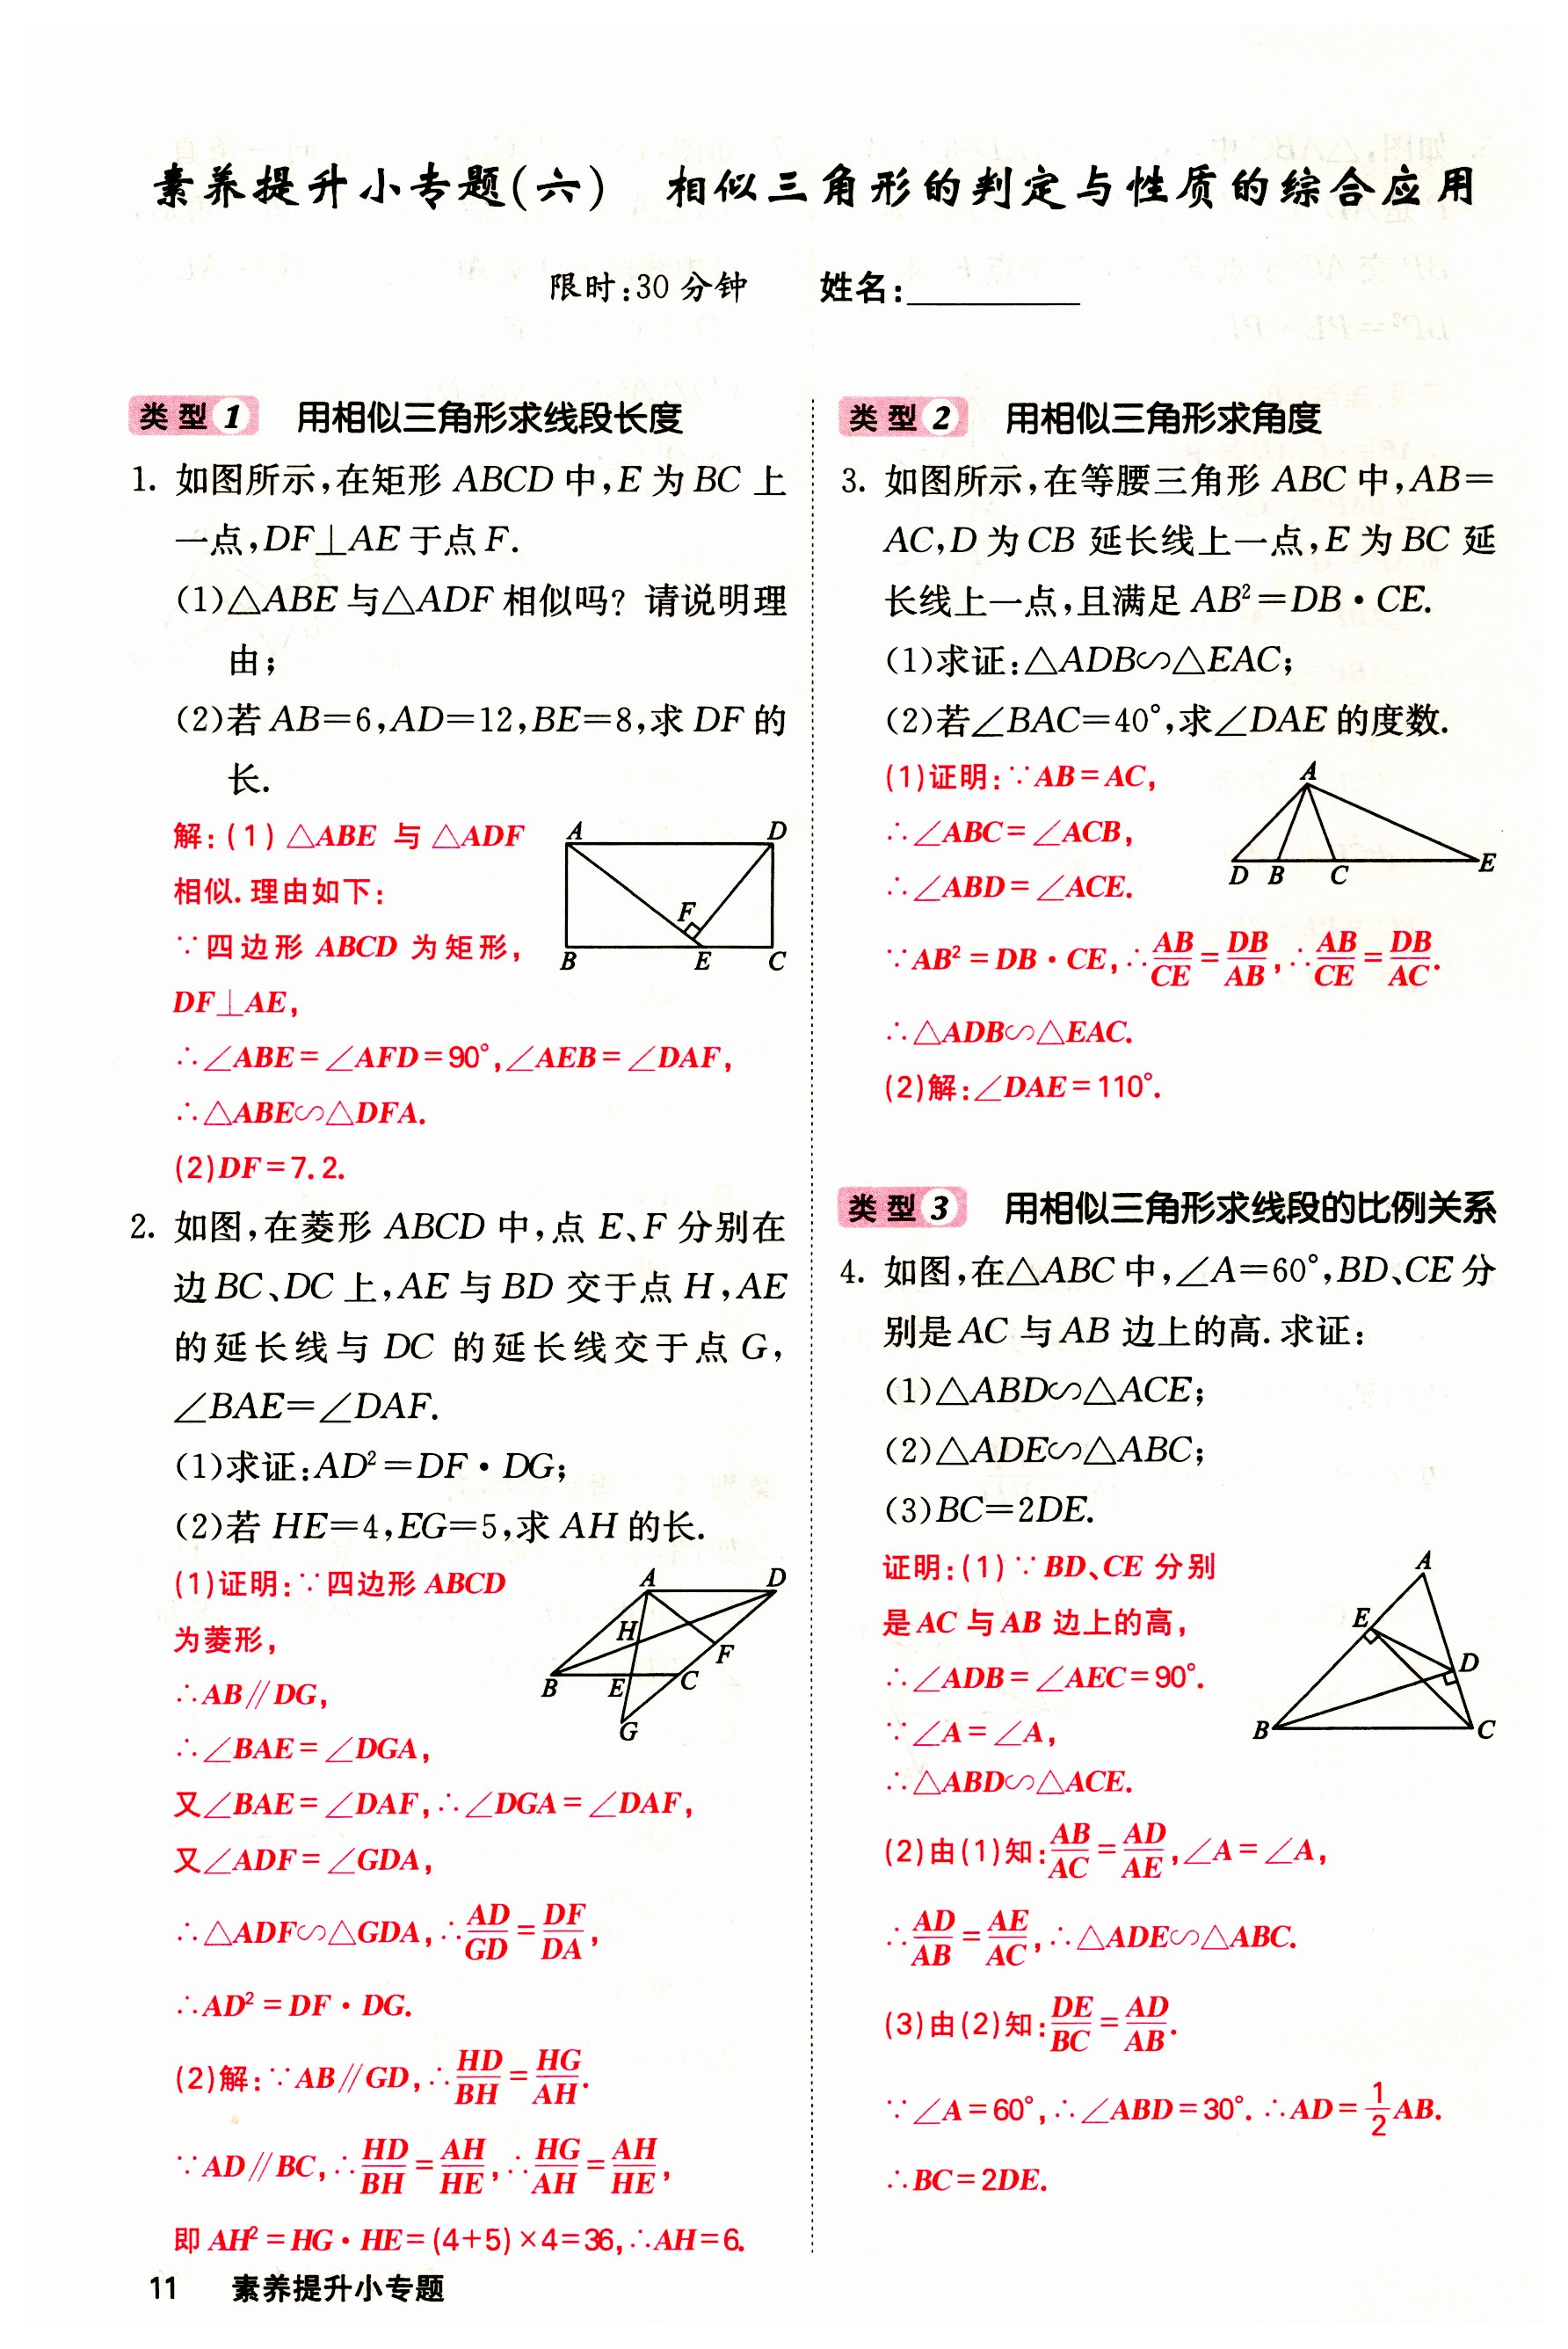 素养提升小专题(六) 相似三角形的判定与性质的综合应用
限时:30分钟 姓名:
类型1 用相似三角形求线段长度
1. 如图所示,在矩形ABCD中,E为BC上
一点,DF⊥AE于点F.
(1)△ABE与△ADF相似吗?请说明理
由;
(2)若AB=6,AD=12,BE=8,求DF的
长.
解:(1)△ABE与△ADF
相似.理由如下:
∵四边形ABCD为矩形,
DF⊥AE,
∴∠ABE=∠AFD=90°,∠AEB=∠DAF,
∴△ABE∽△DFA.
(2)DF=7.2.
A D
F
B E C
2. 如图,在菱形ABCD中,点E、F分别在
边BC、DC上,AE与BD交于点H,AE
的延长线与DC的延长线交于点G,
∠BAE=∠DAF.
(1)求证:AD²=DF·DG;
(2)若HE=4,EG=5,求AH的长.
(1)证明:∵四边形ABCD
为菱形,
∴AB∥DG,
∴∠BAE=∠DGA,
又∠BAE=∠DAF,∴∠DGA=∠DAF,
又∠ADF=∠GDA,
∴△ADF∽△GDA,∴AD/GD=DF/DA,
∴AD²=DF·DG.
(2)解:∵AB∥GD,∴HD/BH=HG/AH.
∵AD∥BC,∴HD/BH=AH/HE,∴HG/AH=AH/HE,
即AH²=HG·HE=(4+5)×4=36,∴AH=6.
A D
H
F
B E C
G
类型2 用相似三角形求角度
3. 如图所示,在等腰三角形ABC中,AB=
AC,D为CB延长线上一点,E为BC延
长线上一点,且满足AB²=DB·CE.
(1)求证:△ADB∽△EAC;
(2)若∠BAC=40°,求∠DAE的度数.
(1)证明:∵AB=AC,
∴∠ABC=∠ACB,
∴∠ABD=∠ACE.
∵AB²=DB·CE,∴AB/CE=DB/AB,∴AB/CE=DB/AC.
∴△ADB∽△EAC.
(2)解:∠DAE=110°.
A
D B C E
类型3 用相似三角形求线段的比例关系
4. 如图,在△ABC中,∠A=60°,BD、CE分
别是AC与AB边上的高.求证:
(1)△ABD∽△ACE;
(2)△ADE∽△ABC;
(3)BC=2DE.
证明:(1)∵BD、CE分别
是AC与AB边上的高,
∴∠ADB=∠AEC=90°.
∵∠A=∠A,
∴△ABD∽△ACE.
(2)由(1)知:AB/AC=AD/AE,∠A=∠A,
∴AD/AB=AE/AC,∴△ADE∽△ABC.
(3)由(2)知:DE/BC=AD/AB.
∵∠A=60°,∴∠ABD=30°.∴AD=1/2AB.
∴BC=2DE.
A
E
D
B C
11 素养提升小专题